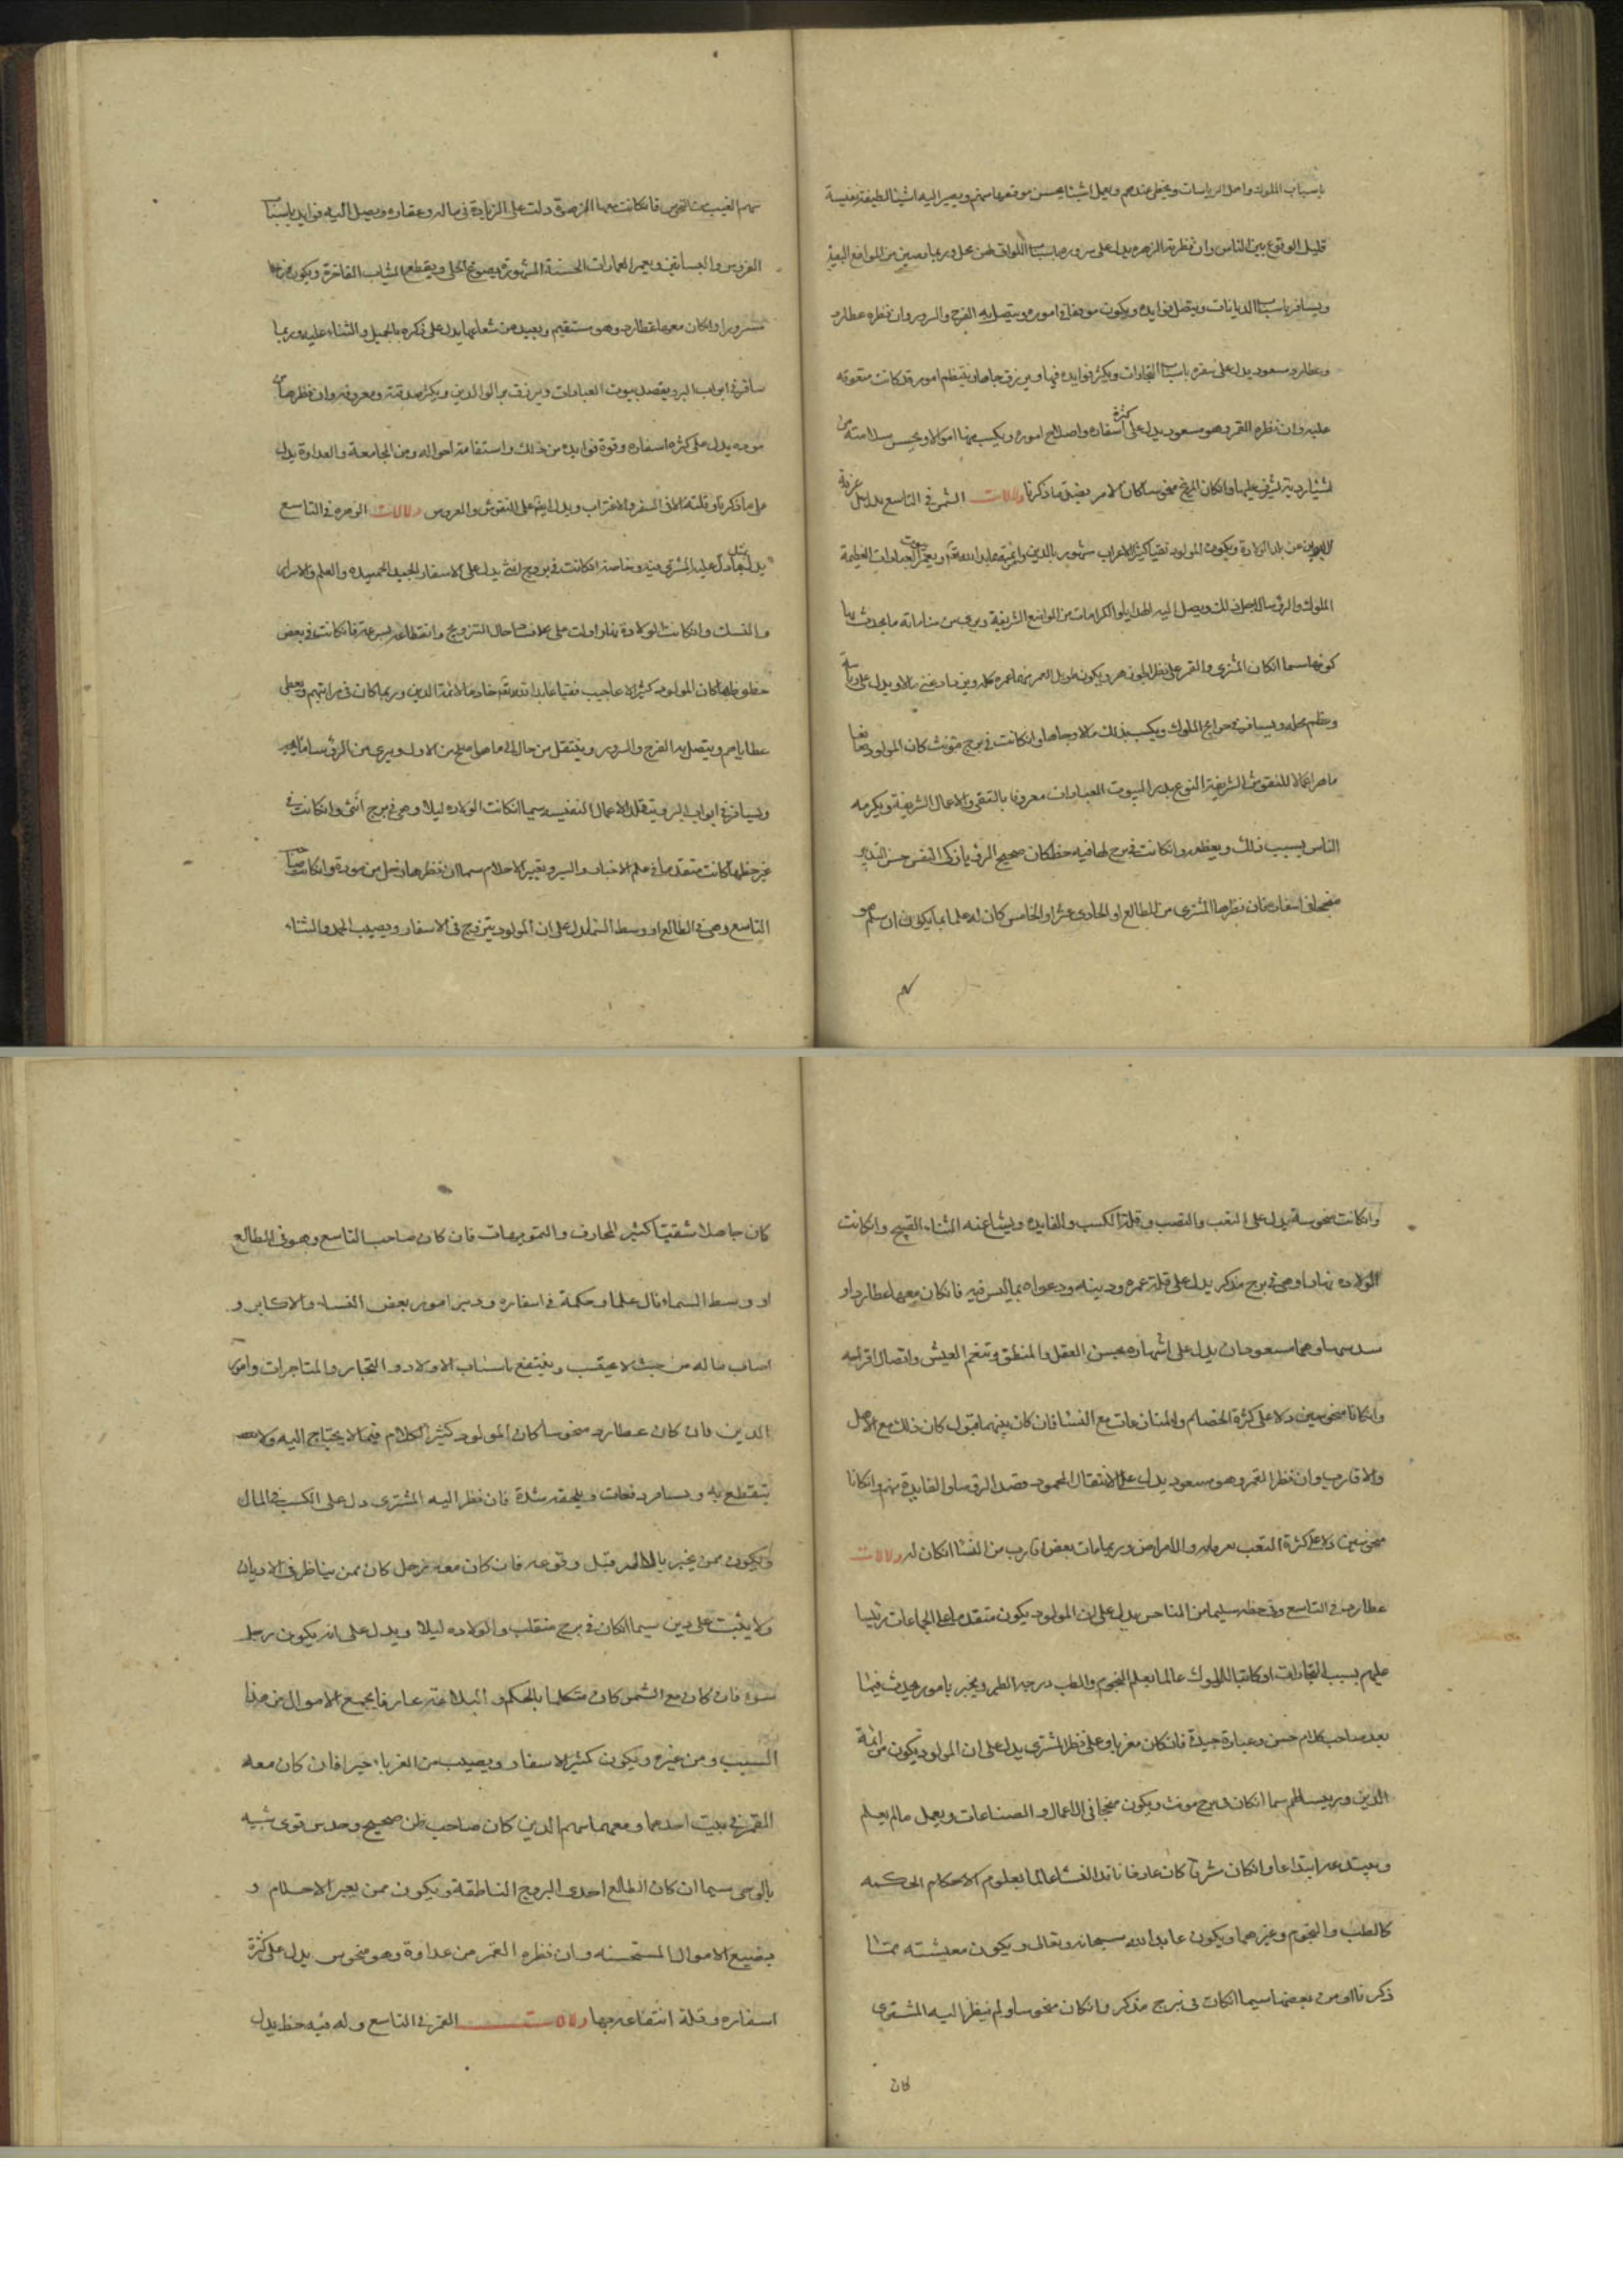 باسباب الملوك واهل الرياسات ويحظى عندهم ويعمل اشيا يحسن موقعها منهم ويصير اليه اشيا لطيفة نفيسة
قليل الوقوع بين الناس وان نظرته الزهره يدل على سروره باسباب اللواتى لهن محل وربما من المواضع البعيدة
ويسافر باسباب الديانات ويتصل فوايده ويكون موفقا فى اموره ويتصل به الفرح والسرور وان نظره عطارد
وعطارد مسعود يدل على سفره باسباب التجارات ويكثر فوايده فيها ويرزق جاها وينتظم امور قد كانت متعوقه
عليه وان نظره القمر وهو مسعود يدل على كثرة اسفاره واصلاح اموره ويكسب منها اموالا ويحسن سلامته من
اشيا ردية يشرف عليها وان كان المريخ منحوسا كان الامر بضد ما ذكرنا دلالات الشمس فى التاسع يدل على غربة
عن بلد الولادة ويكون المولود تقيا كثير الاعراب مشهور بالدين وائمته عابدا لله تعالى ويعمر بيوت العبادات العظيمة
الملوك والرؤسا لاجل ذلك ويصل اليه الهدايا والكرامات من المواضع الشريفة ويرى من مناماته ما يحدث
كونها سيما ان كان المشترى والقمر على نظر ويكون طويل العمر نزها عمره كله ويزداد غنى ومالا ويدل على رياسة
وعظم محله ويسافر فى حوايج الملوك ويكسب بذلك مالا وجاها وان كانت فى برج مؤنث كان المولود صانعا
ماهرا عمالا للنقوش الشريفة النوع مدبر البيوت العبادات معروفا بالتقى والاعمال الشريفة ويكرمه
الناس بسبب ذلك ويعظمه وان كانت فى برج لها فيه حظ كان صحيح الرؤيا زكى النفس حسن التدبير
منجحا فى اسفاره فان نظرها المشترى من الطالع او الحادى عشر او الخامس كان له علما بما يكون ان سلم هو
سهم الغيب من النحوس فان كانت معها الزهرة دلت على الزيادة فى ماله وعقاره ويصل اليه فوايد باسباب
الغروس والبساتين ويعمر العمارات الحسنة المشهورة ويصوغ الحلى ويقطع الثياب الفاخرة ويكون فرحا
مسرورا وان كان معها عطارد وهو مستقيم وبعيد من شعاعها يدل على ذكره بالجميل والثناء عليه وربما
سافر فى ابواب البر ويقصد بيوت العبادات ويرزق بر الوالدين ويكثر صدقته ومعروفه وان نظرها من
موده يدل على كثره اسفاره وقوة فوايده من ذلك واستقامة احواله ومن المجامعة والعداوة يدل
على ما ذكرنا وقلته فى السفر والاغتراب ويدل ايضا على النقوش والعروس دلالات الزهره فى التاسع
يدل بمثل ما دل عليه المشترى فيه وخاصة ان كانت فى برج انثى يدل على الاسفار الجيده الحميده والعلم والاسرار
والنسك وان كانت الولادة نهارا دلت على خلاف حال التزويج وانقطاعه بسرعة فان كانت فى بعض
حظوظها كان المولود كثير الاعاجيب فقيها عابدا لله تعالى خادما لائمة الدين وربما كان فى مراتبهم ويعطى
عطاياهم ويتصل به الفرح والسرور وينتقل من حال الى ما هو اصلح من الاول ويرى من الرؤسا ما يحب
ويسافر فى ابواب البر ويتقلد الاعمال النفيسه سيما ان كانت الولاده ليلا وهى فى برج انثى وان كانت فى
غير حظها كانت متقدما فى علم الاخبار والسير وتعبير الاحلام سيما ان نظرها زحل من مودة وان كانت صاحب
التاسع وهى فى الطالع او وسط السما يدل على ان المولود يتزوج فى الاسفار ويصيب الحمد والثناء
وان كانت منحوسة يدل على التعب والنصب وقلة الكسب والفايده ويشاع عنه الثناء القبيح وان كانت
الولاده نهارا وهى فى برج مذكر يدل على قلة عمره ودينه ودعواه بما ليس فيه فان كان معها عطارد او
سدسها وهما مسعودان يدل على اشتهاره بحسن العقل والمنطق وتنعم العيش واتصال افراحه
وان كانا منحوسين دلا على كثرة الخصام والمنازعات مع النسا فان كان بينهما قبول كان ذلك مع الاهل
والاقارب وان نظر القمر وهو مسعود يدل على الانتقال المحمود وقصد الرؤسا والفايدة منهم وان كانا
منحوسين دلا على كثرة التعب والامراض وربما مات بعض اقارب من النسا ان كان له دلالات
عطارد فى التاسع وفى حظه سليما من المناحس يدل على ان المولود يكون متقدما على الجماعات رئيسا
عليهم بسبب التجارات او كاتبا للملوك عالما بعلم النجوم والطب ويخبر بامور يحدث فيما
بعد صاحب كلام حسن وعبارة جيدة فان كان مغربا وعلى نظر المشترى يدل على ان المولود يكون من ائمة
الدين ورئيسا لهم سيما ان كان فى برج مونث ويكون منجحا فى الاعمال والصناعات ويعمل ما لم يعلم
ويبتدعه ابتداعا وان كان شرقيا كان عارفا ناقدا لانشا عالما بعلوم الاحكام الحكميه
كالطب والنجوم وغيرهما ويكون عابدا لله سبحانه وتعالى ويكون معيشته مما
ذكرنا او من بعضها سيما ان كان فى برج مذكر وان كان منحوسا ولم ينظر اليه المشترى
كان
كان جاهلا شقيا كثير المخارف والتمويهات فان كان صاحب التاسع وهو فى الطالع
او وسط السماء نال علما وحكمة فى اسفاره ودبر امور بعض النساء والاكابر و
اصاب ماله من حيث لا يحتسب وينتفع باسباب الاولاد والتجار والمتاجرات وامور
الدين فان كان عطارد منحوسا كان المولود كثير الكلام فيما لا يحتاج اليه ولا
ينقطع به ويسافر دفعات ويلحقه شدة فان نظر اليه المشترى دل على الكسب فى المال
ويكون ممن يخبر قبل وقوعه فان كان معه زحل كان ممن يناظر فى الاديان
ولا يثبت على دين سيما ان كان فى برج منقلب والولاده ليلا ويدل على انه يكون رجل
سوء فان كان مع الشمس كان متكلما بالحكم والبلاغة عارفا يجمع الاموال من هذا
السبب ومن غيره ويكون كثير الاسفار ويصيب من الغرباء خيرا فان كان معه
القمر فى بيت احدهما ومعهما سهم الدين كان صاحب ظن صحيح وحدس قوى شبيه
بالوحى سيما ان كان الطالع احدى البروج الناطقة ويكون ممن يعبر الاحلام و
يضيع الاموال المستحسنه وان نظره القمر من عداوة وهو منحوس يدل على كثرة
اسفاره وقلة انتفاعه بها دلالات القمر فى التاسع وله فيه حظ يدل